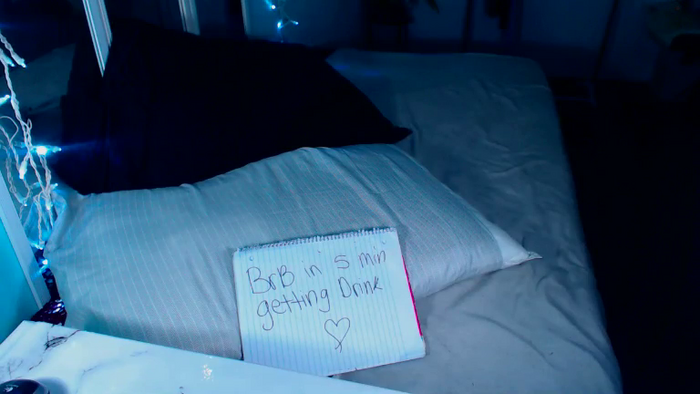 BrB in 5 min
getting Drink
♡